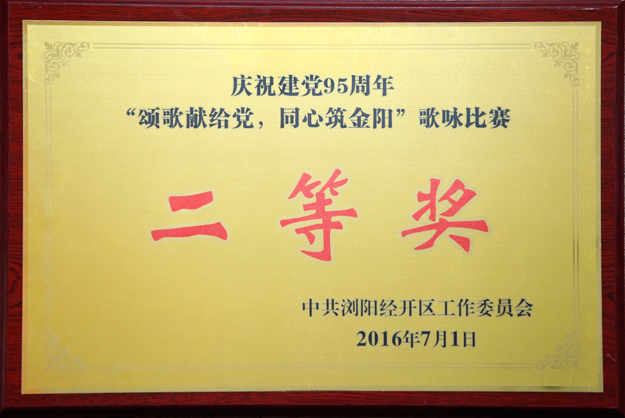 庆祝建党95周年
“颂歌献给党，同心筑金阳”歌咏比赛
二等奖
中共浏阳经开区工作委员会
2016年7月1日